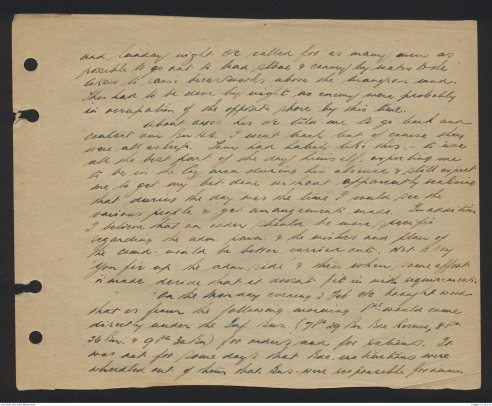 and Sunday night O/C called for as many men as
possible to go out to load stone & convey by water to the
to raise breastworks above the mangrove mud.
This had to be done by night as enemy were probably
in occupation of the opposite shore by this time.
About 0200 hrs O/C told me to go back and
contact our I went back but of course they
were all asleep. had habits like this:- to use
all the best part of the day himself, expecting me
to be in the lay area during his absence & still expect
me to get my bit done without apparently realising
that during the day was the time I could see the
various people & get arrangements made. In addition
I believe that an order should be more specific
regarding the adm. & the wishes and plan of
the comd. would be better carried out. Not to say
"you fix up the adm. side" & then when some effort
is made decide that it doesn't fit in with requirements.
On the Monday evening 2 Feb O/C brought word
that as from the following morning would come
directly under the Inf. Bns.
for orders and for rations. It
was not for some days that Bde. instructions were
out of them that Bns. were responsible for